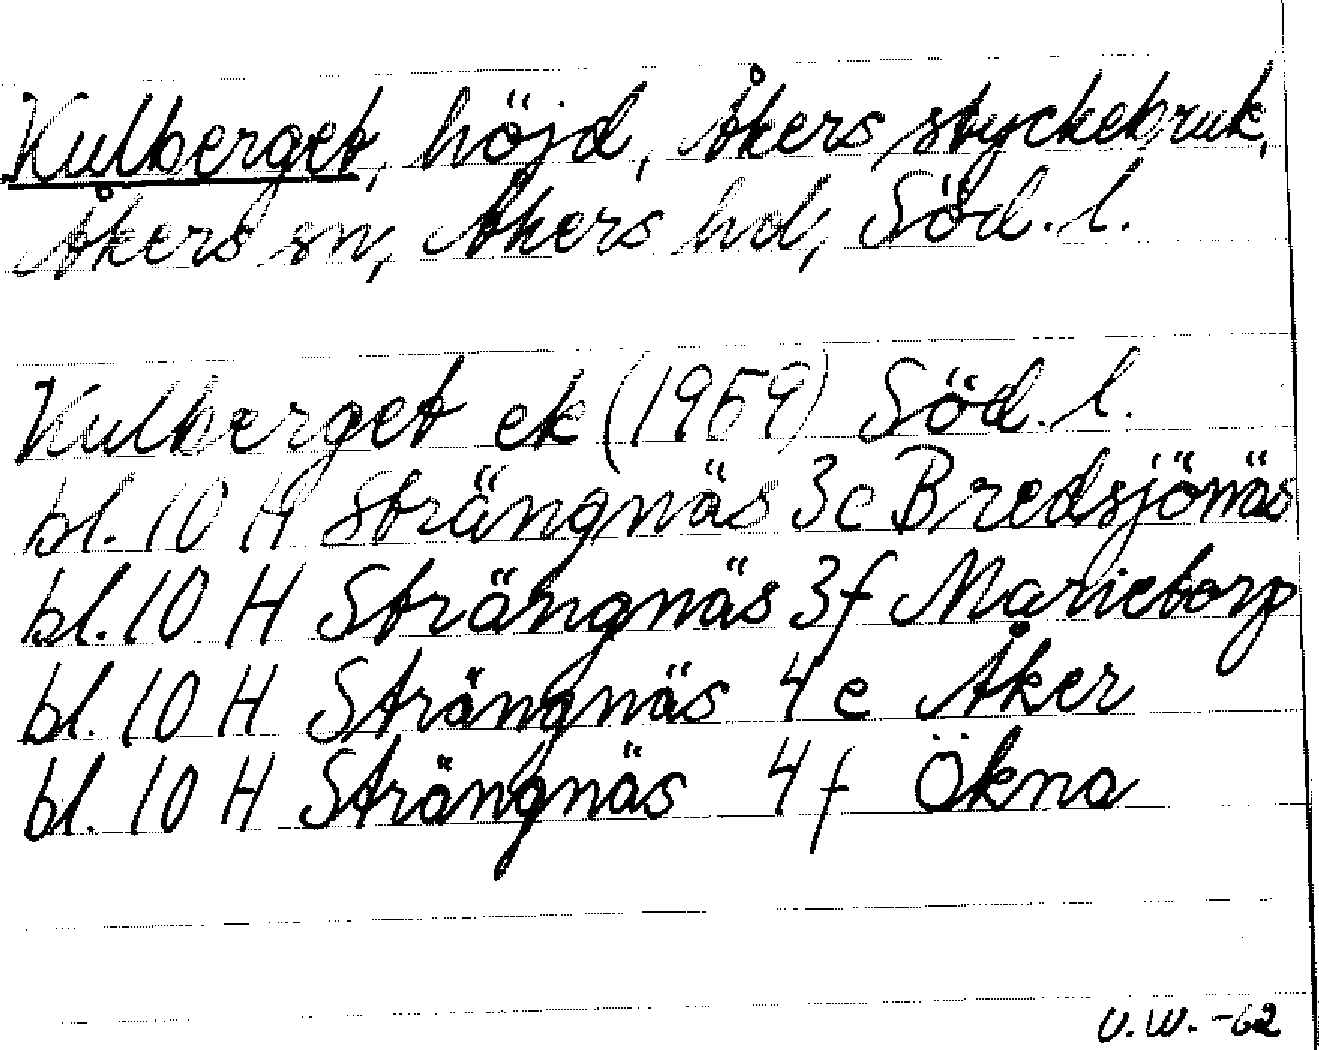 Kulberget, höjd, Åkers styckebruk,
Åkers sn, Åkers hd, Söd. l.
Kulberget ek (1959) Söd. l.
bl. 10 H Strängnäs 3e Bredsjönäs
bl. 10 H Strängnäs 3f Marieborg
bl. 10 H Strängnäs 4e Åker
bl. 10 H Strängnäs 4f Ökna
U.W. -62